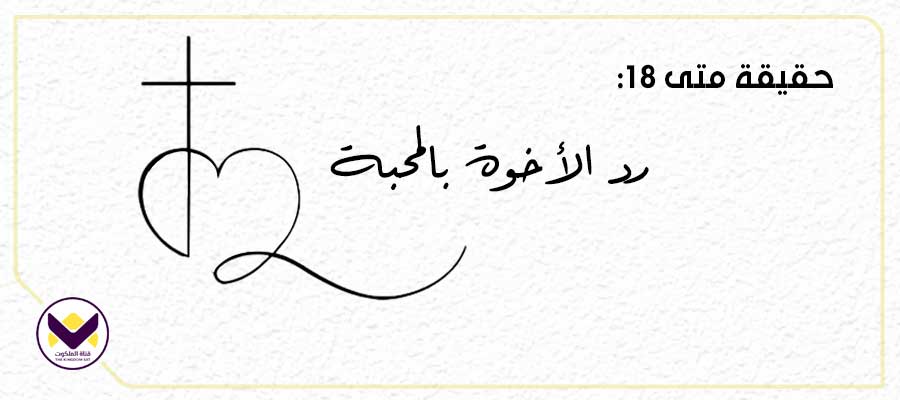 حقيقة متى 18:
رد الأخوة بالمحبة
قناة الملكوت
THE KINGDOM SAT